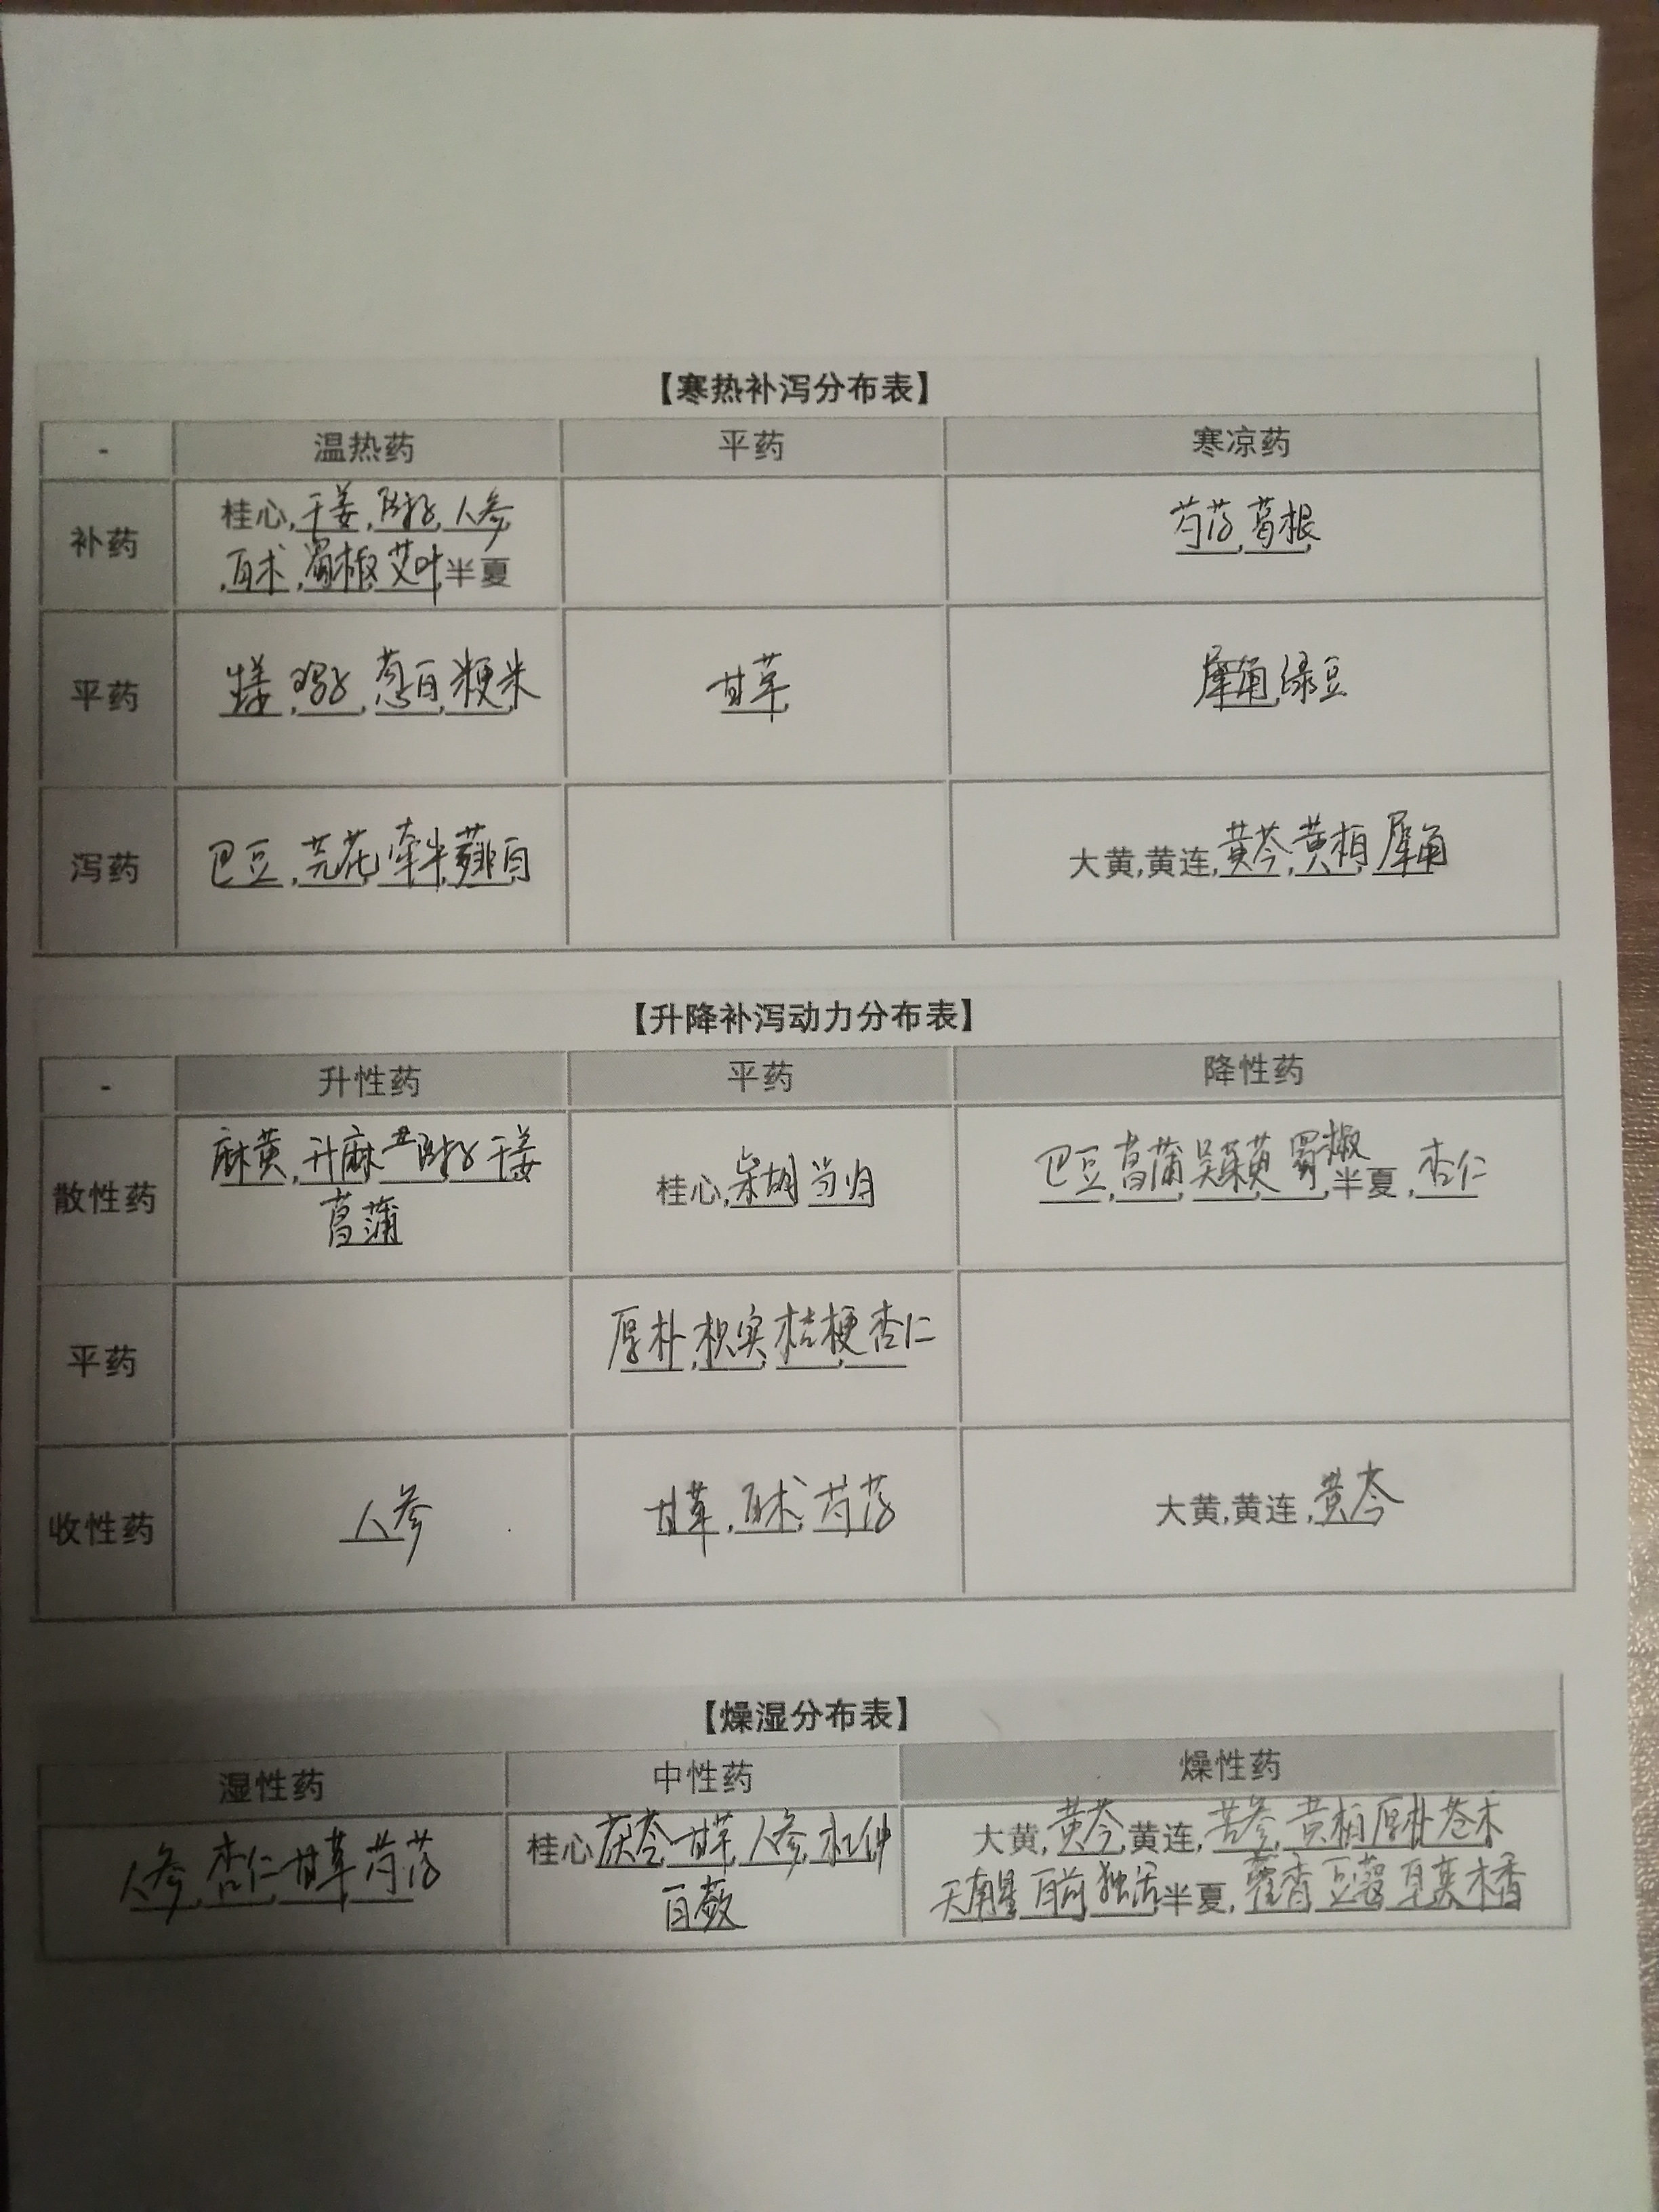 【寒热补泻分布表】
- 温热药 平药 寒凉药
补药
桂心,干姜,附子,人参
,白术,蜀椒,艾叶,半夏
芍药,葛根
平药
生姜,鸡子,葱白,粳米
甘草
犀角,绿豆
泻药
巴豆,芫花,牵牛,薤白
大黄,黄连,黄芩,黄柏,犀角
【升降补泻动力分布表】
- 升性药 平药 降性药
散性药
麻黄,升麻,附子,干姜
菖蒲
桂心,柴胡,当归
巴豆,菖蒲,吴茱萸,蜀椒,半夏,杏仁
平药
厚朴,枳实,桔梗,杏仁
收性药
人参
甘草,白术,芍药
大黄,黄连,黄芩
【燥湿分布表】
湿性药 中性药 燥性药
人参,杏仁,甘草,芍药
桂心,茯苓,甘草,人参,杜仲
白薇
大黄,黄芩,黄连,苦参,黄柏,厚朴,苍术
天南星,白前,独活,半夏,藿香,豆蔻,草果,木香